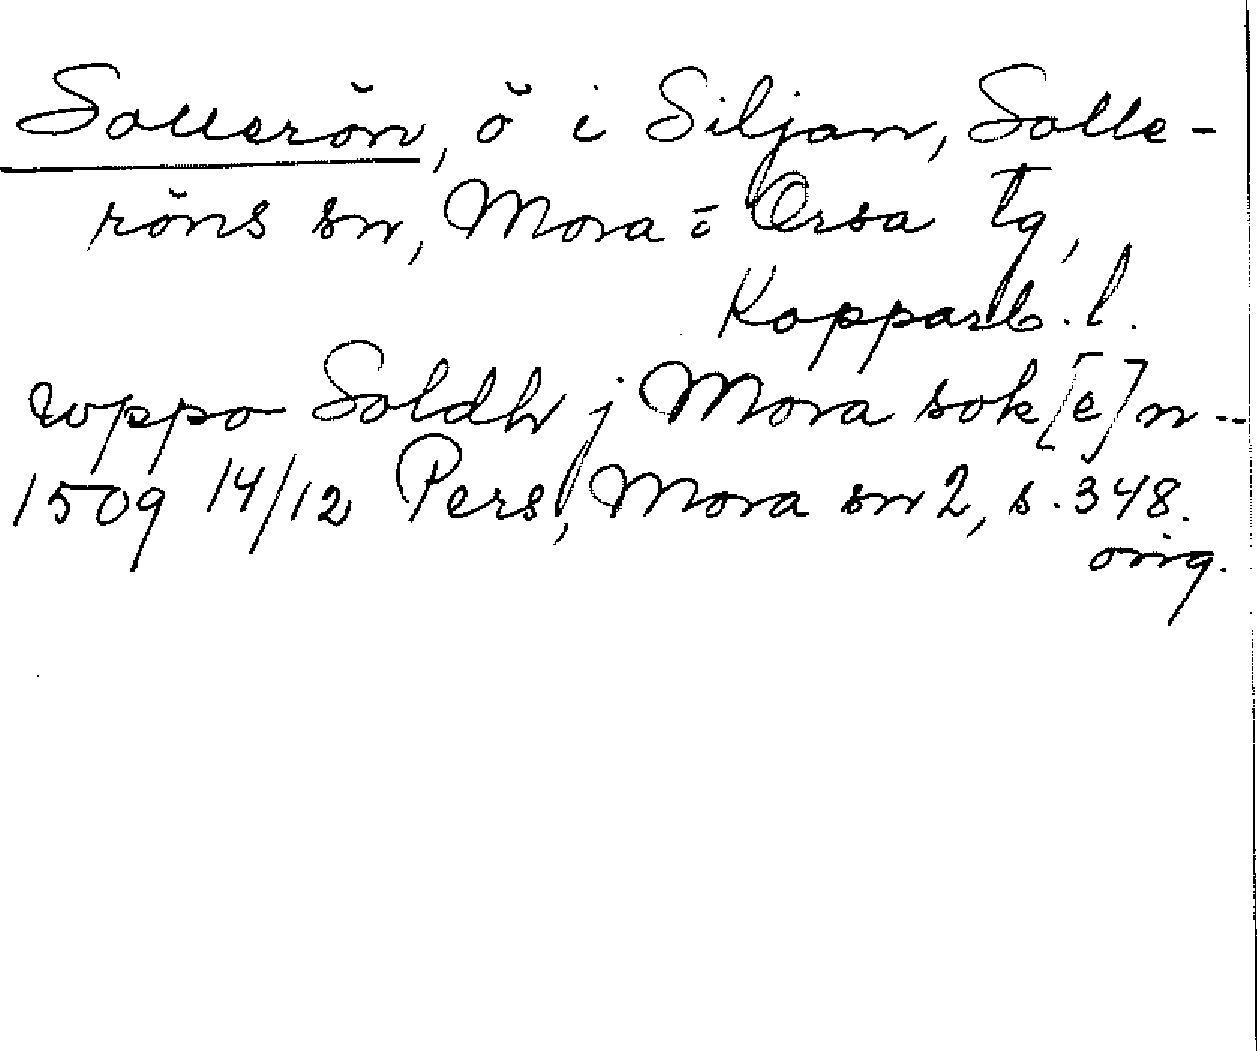 Sollerön, ö i Siljan, Solle-
röns sn, Mora o Orsa tg,
Kopparb. l.
wppo Soldh j Mora sok[e]n --
1509 14/12 Pers, Mora sn 2, s. 348.
orig.